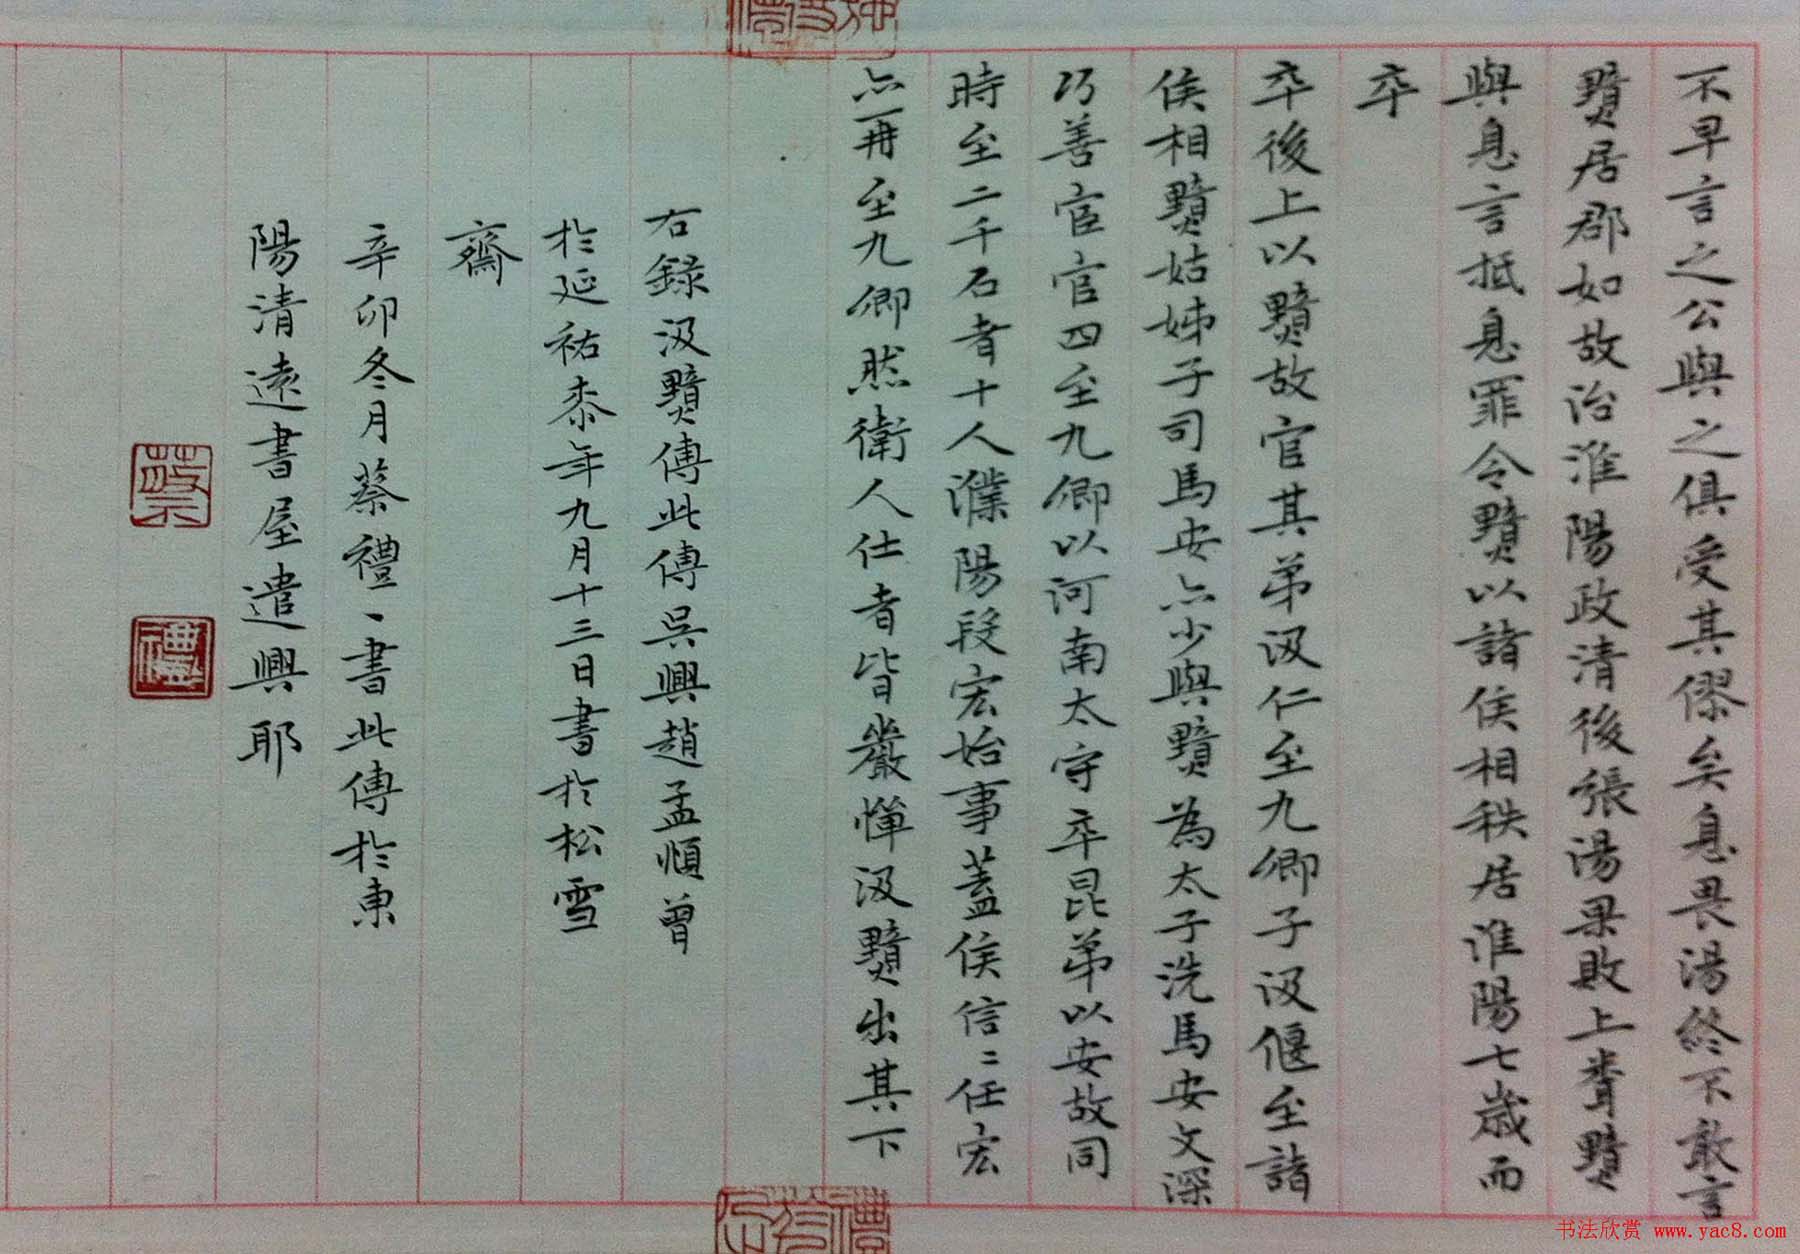 不早言之公與之俱受其僇矣息畏湯終不敢言
黯居郡如故治淮陽政清後張湯果敗上聞黯
與息言抵息罪令黯以諸侯相秩居淮陽七歲而
卒
卒後上以黯故官其弟汲仁至九卿子汲偃至諸
侯相黯姑姊子司馬安亦少與黯為太子洗馬安文深
巧善宦官四至九卿以河南太守卒昆弟以安故同
時至二千石者十人濮陽段宏始事蓋侯信〻任宏
亦再至九卿然衛人仕者皆嚴憚汲黯出其下
右錄汲黯傳此傳吳興趙孟頫曾
於延祐柒年九月十三日書於松雪
齋
辛卯冬月蔡禮丶書此傳於東
陽清遠書屋遣興耶
蔡
禮
书法欣赏 www.yac8.com